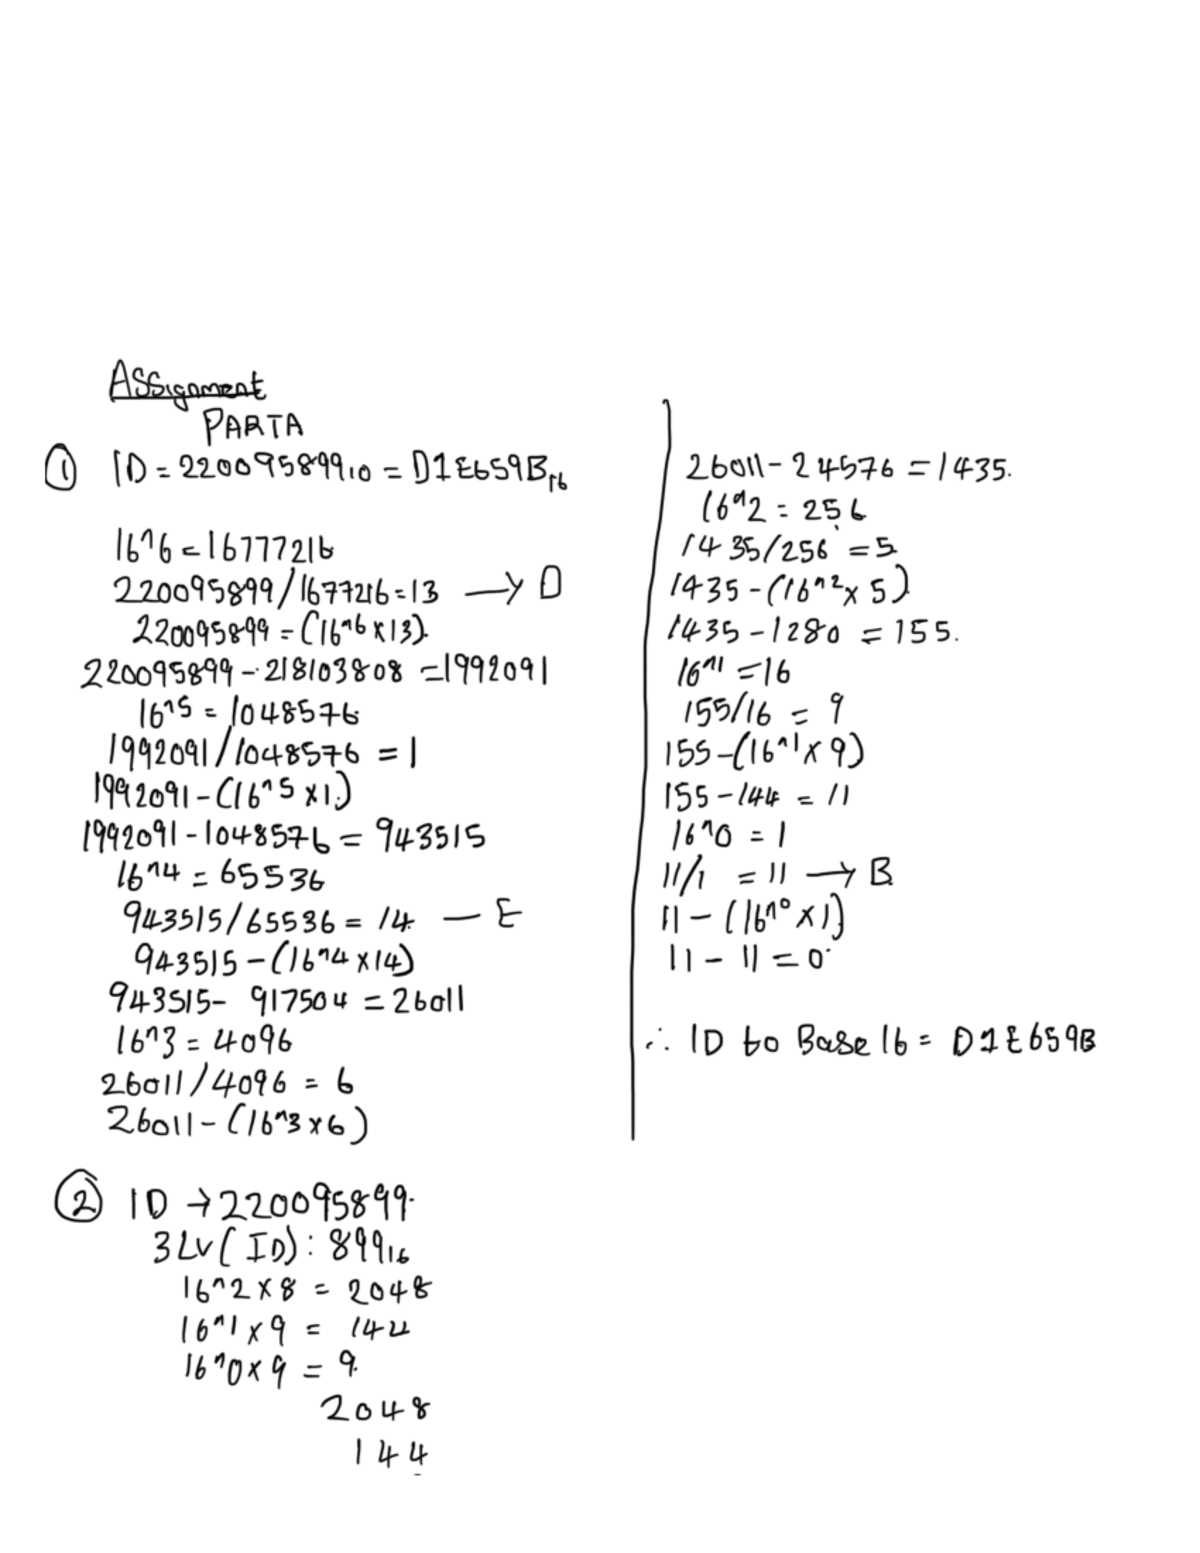 Assignment
PART A
① ID = 220095899₁₀ = D1E659B₁₆
16^6 = 16777216
220095899/1677216 = 13 → D
220095899 = (16^6 x 13).
220095899 - 218103808 = 1992091
16^5 = 1048576
1992091/1048576 = 1
1992091 - (16^5 x 1.)
1992091 - 1048576 = 943515
16^4 = 65536
943515/65536 = 14 — E
943515 - (16^4 x 14)
943515 - 917504 = 26011
16^3 = 4096
26011/4096 = 6
26011 - (16^3 x 6)
26011 - 24576 = 1435.
16^2 = 256
1435/256 = 5
1435 - (16^2 x 5)
1435 - 1280 = 155.
16^1 = 16
155/16 = 9
155 - (16^1 x 9)
155 - 144 = 11
16^0 = 1
11/1 = 11 → B
11 - (16^0 x 1)
11 - 11 = 0
∴ ID to Base 16 = D1E659B
② ID → 220095899.
3LV(ID): 899₁₆
16^2 x 8 = 2048
16^1 x 9 = 144
16^0 x 9 = 9.
2048
144